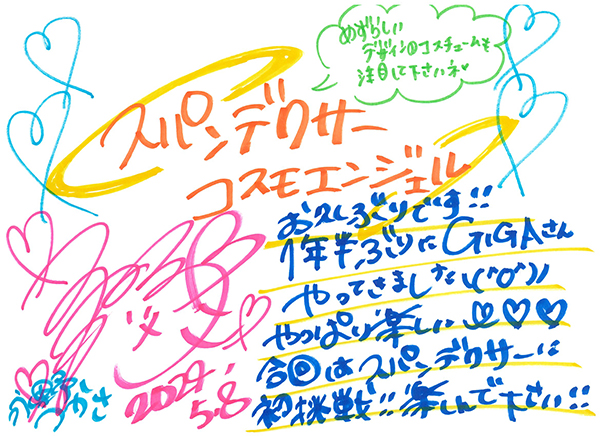 めずらしい
デザインのコスチュームも
注目して下さいネ♥
スパンデクサー
コスモエンジェル
お久しぶりです!!
1年半ぶりにGIGAさん
やってきました\(^o^)//
やっぱり楽しい♡♡♡
今回はスパンデクサーに
初挑戦!!楽しんで下さい!!
2024.
5.8